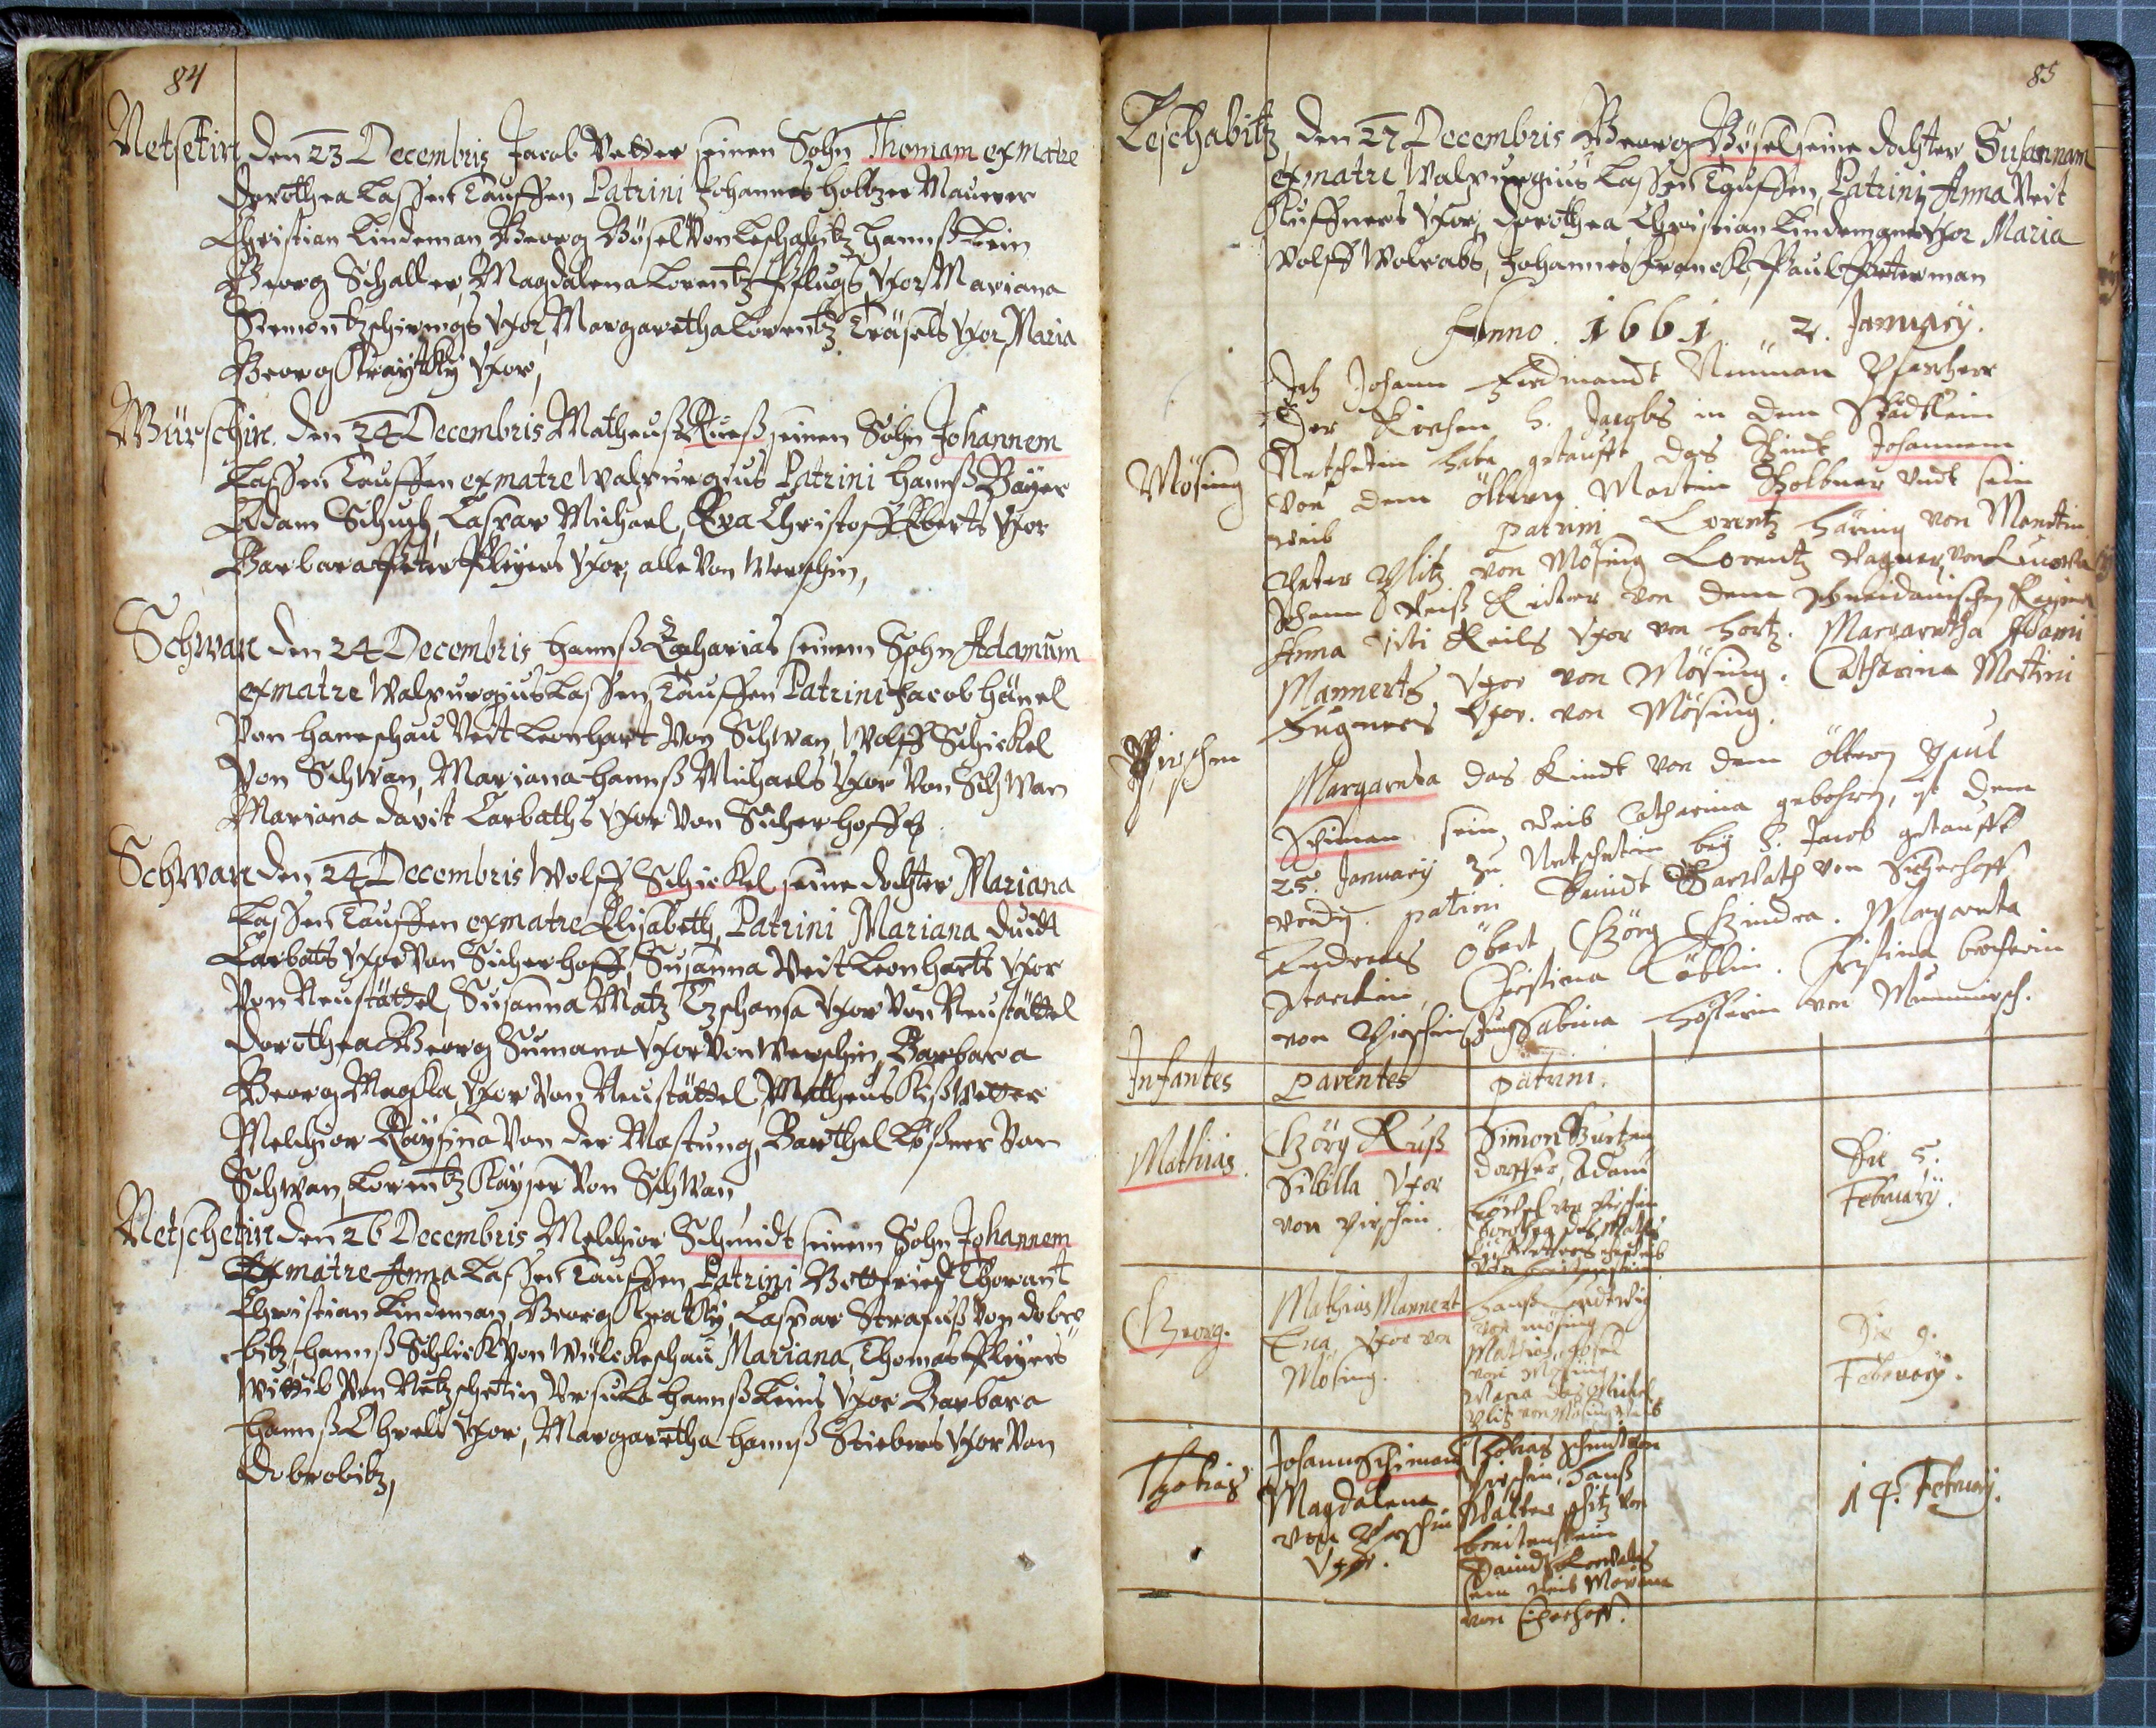 84
Netsetin den 23 Decembris Jacob Vetter seinen Sohn Thomam ex matre
Dorothea Lassen Tauffen Patrini Johannes Holtzer Maurer
Christian Lindeman Georg Bösel Von Leschabitz Hannß Lein
Georg Schaller, Magdalena Lorentz Pflugs Vxor Mariana
Vxor, Margaretha Lorentz Träsels Vxor, Maria
Georg Kraytky Vxor,
Würschin. den 24 Decembris Matheuß Rueß seinen Sohn Johannem
Lassen Tauffen ex matre Walpurgius Patrini Hannß Bayer
Adam Schuch, Caspar Michael, Eva Christoff Eberts Vxor
Barbara Peter Pleyers Vxor, alle Von Werschin,
Schwan den 24 Decembris Hannß Zacharias seinem Sohn Adamum
ex matre Walpurgius Lassen Tauffen Patrini Jacob Hänel
Von Haneschau Veit Leonhart Von Schwan, Wolff Schickel
Von Schwan, Mariana Hannß Michaels Vxor Von Schwan
Mariana Davit Carbaths Vxor Von Sicherhoff
Schwan den 24 Decembris Wolff Schickel seine dochter Mariana
Lassen Tauffen ex matre Elisabeth, Patrini Mariana Davidt
Carbats Vxor Von Sicherhoff, Susanna Veit Leonharts Vxor
Von Neustättel, Susanna Matz Tzschansa Vxor Von Neustättel
Dorothea Georg Sumana Vxor Von Werschin, Barbara
Georg Macska, Vxor Von Neustättel, Matheus Kißvetter
Melchior Raysina Von der Mastung, Barthel Lößner Von
Schwan, Lorentz Kayser Von Schwan
Netschetin den 26 Decembris Melchior Schmidt seinem Sohn Johannem
Ex matre Anna Lassen Tauffen Patrini Gottfried Thorant
Christian Lindeman, Georg Kratky, Caspar Strafuß Von Dobro
bitz, Hannß Schlick Von Wülckeschau Mariana, Thomas Pleyers
Wittib Von Netzschetin Ursula Hannß Leins Vxor Barbara
Hannß Ehrels Vxor, Margaretha Hannß Stiebers Vxor Von
Dobrobitz,
85
Leschabitz, den 27 Decembris Georg Bösel seine dochter Susannam
ex matre Walpurgius Lassen Tauffen, Patrini Anna Veit
Küffners Vxor, Dorothea Christian Lindemans Vxor Maria
Wolff Wolrabs, Johannes Franck, Paul Peterman
Anno. 1661 2. January.
Ich Johann Ferdinandt Neuman Pfarherr
Der Kirchen S. Jacobs in dem Städtlein
Netschetin habe getaufft das Kindt Johannem
Mösing
von dem öltern Martin Gollner undt sein
weib patrini Lorentz Häring von Manetin
Peter Plitz von Mösing Lorentz Wagner von
Johann Weiß Reitter von dem
Anna Viti Keils Vxor von Hortz. Margaretha Adami
Mannerts Vxor von Mösing. Catharina Martini
Eugners Vxor. von Mösing.
Pirschen
Margareta das Kindt von dem öltern Paul
Schiman sein weib Catharina gebohren, ist dem
25. January zu Netschetin bey S. Jacob getaufft
worden. patrini Davidt Carbath von Sicherhoff
Endreas Öbert, Görg Gindra. Margareta
Starckin, Christina Löblin. Christina
von Pirschin Sabina
Infantes parentes patrini.
Mathias. Görg Ruß Sibilla Vxor von Pirschin. Simon
dorffer, Adam
von Pirschin
Die 5. February.
Georg. Mathias Mannert Eva Vxor von Mösing. Hanß Ludwig
von Mösing
Mathias
von Mösing
Maria
Plitz von Mösing weib
Die 9. February.
Thobias Johann Schiman Magdalena von Perschin Vxor. Thobias Schmidt von
Pirschin, Hanß
Walter von
Breitenstein
Davidt
sein weib Mariana
von Sicherhoff.
14. February.